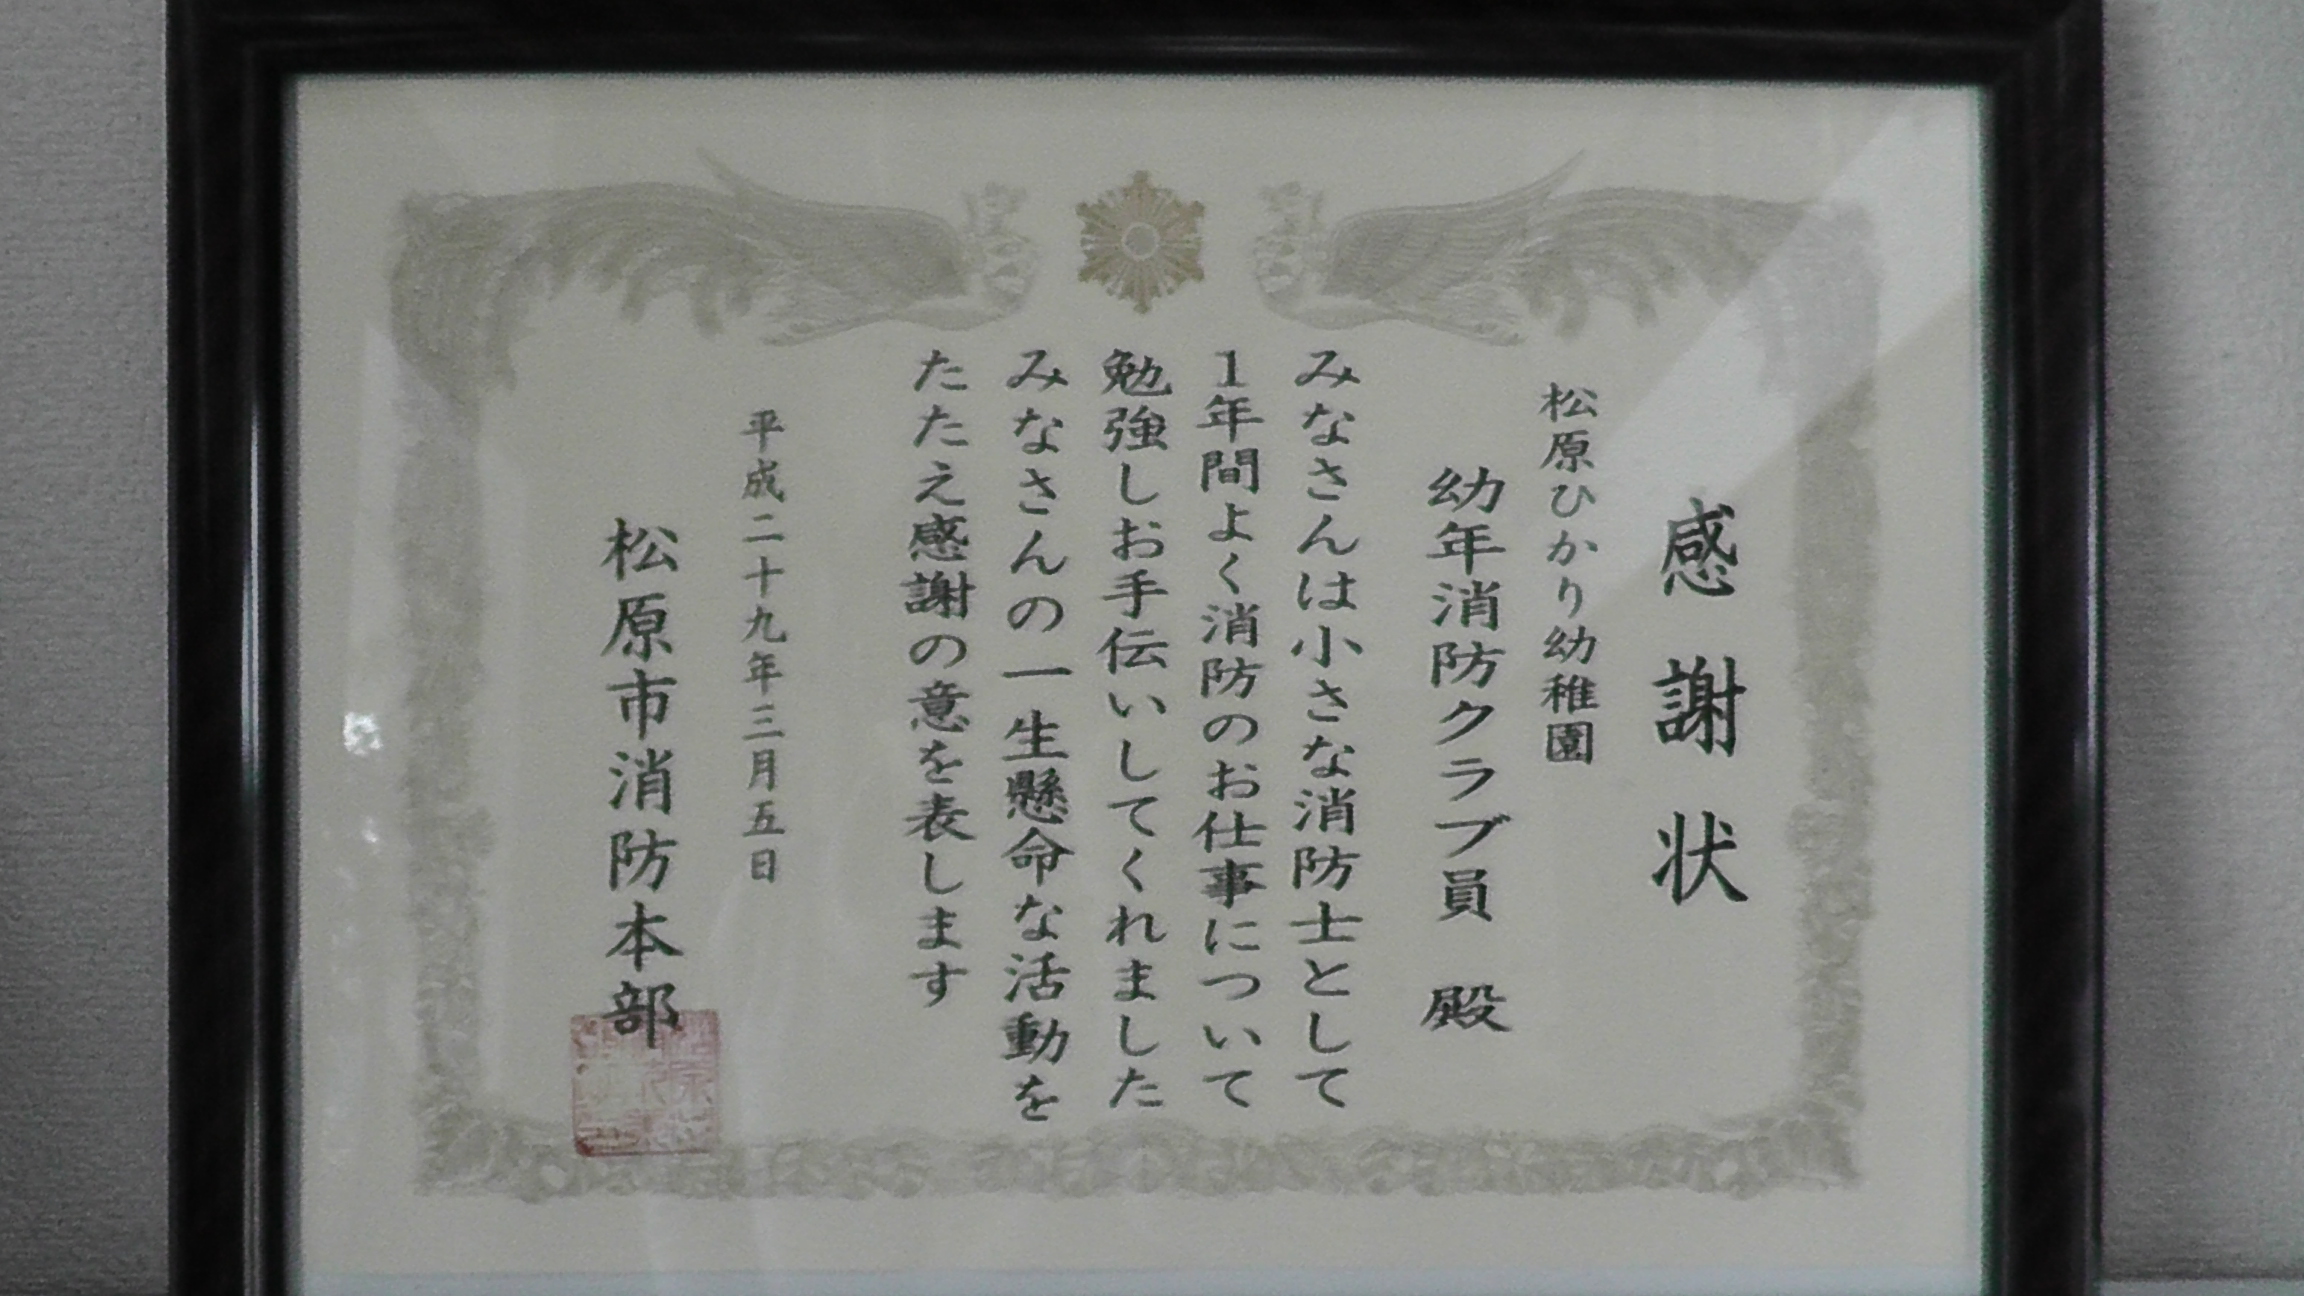 感謝状
松原ひかり幼稚園
幼年消防クラブ員 殿
みなさんは小さな消防士として
1年間よく消防のお仕事について
勉強しお手伝いしてくれました
みなさんの一生懸命な活動を
たたえ感謝の意を表します
平成二十九年三月五日
松原市消防本部